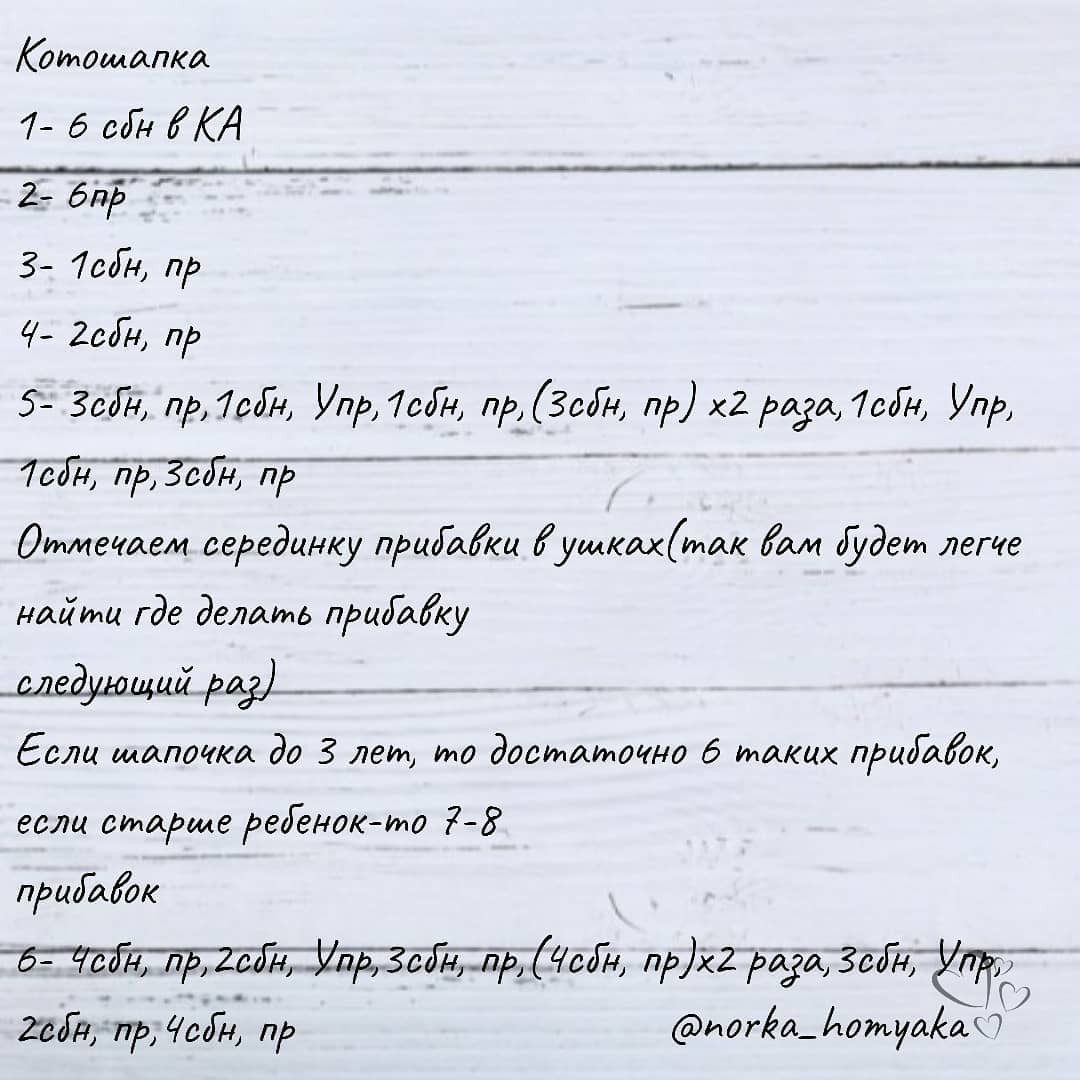 Котошапка
1- 6 сбн в КА
2- 6пр
3- 1сбн, пр
4- 2сбн, пр
5- 3сбн, пр,1сбн, Упр,1сбн, пр,(3сбн, пр) х2 раза,1сбн, Упр,
1сбн, пр,3сбн, пр
Отмечаем серединку прибавки в ушках(так вам будет легче
найти где делать прибавку
следующий раз)
Если шапочка до 3 лет, то достаточно 6 таких прибавок,
если старше ребенок-то 7-8
прибавок
6- 4сбн, пр,2сбн, Упр,3сбн, пр,(4сбн, пр)х2 раза,3сбн, Упр,
2сбн, пр,4сбн, пр
@norka_homyaka